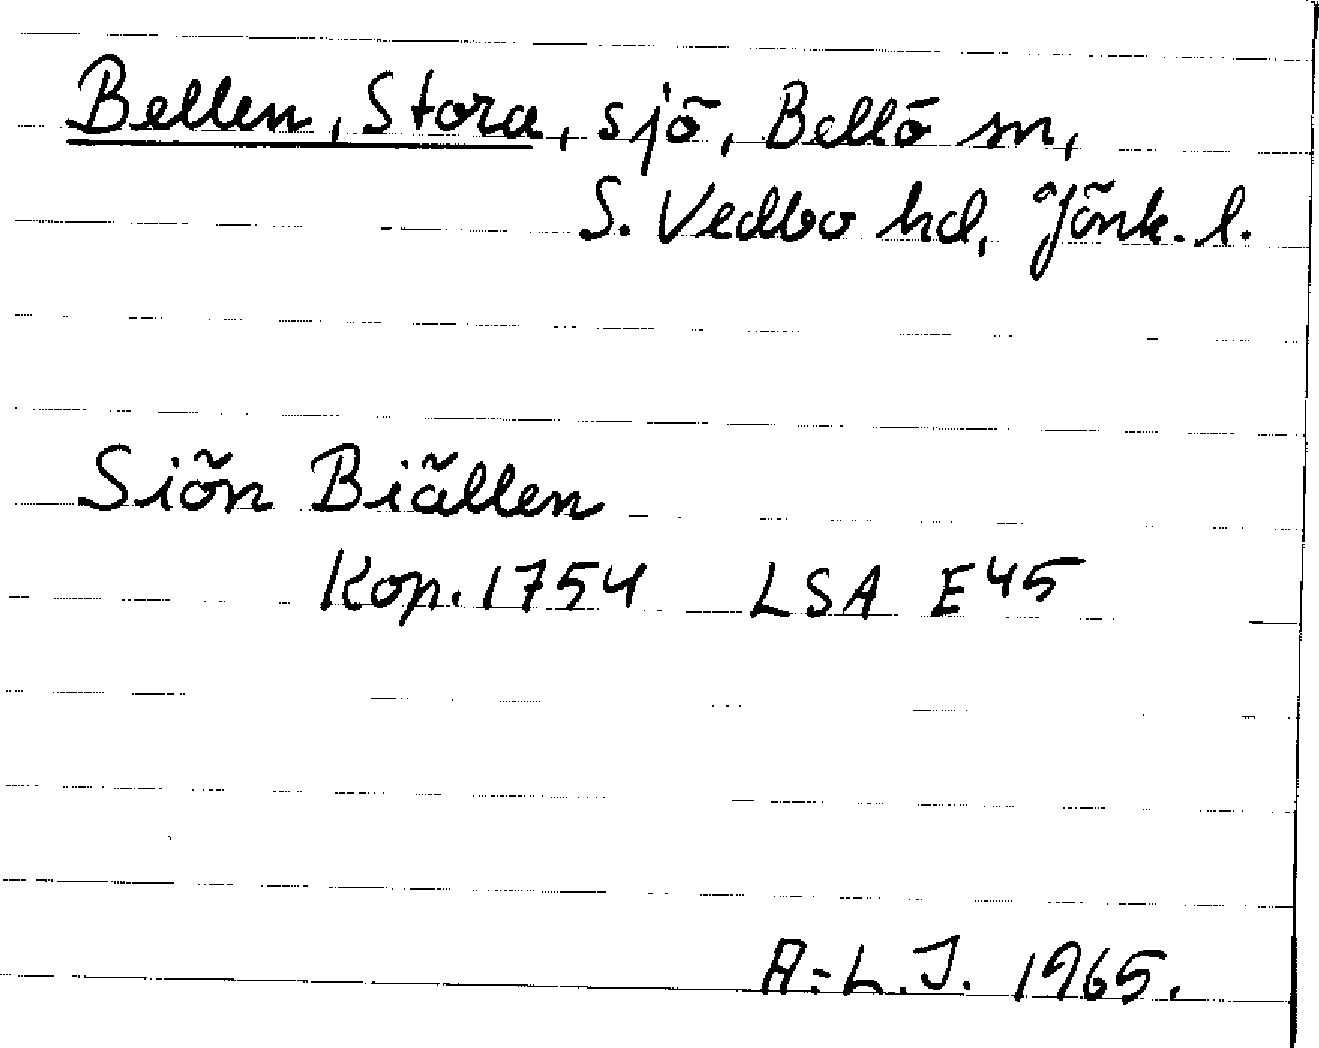 Bellen, Stora, sjö, Bellö sn,
S. Vedbo hd, Jönk. l.
Siön Biällen
Kop. 1754 LSA E45
A-L.J. 1965.